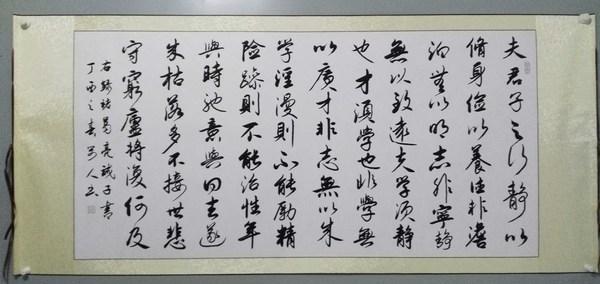 夫君子之行静以
脩身儉以養德非澹
泊無以明志非寧静
無以致遠夫学須静
也才須學也非學無
以廣才非志無以成
學淫漫則不能勵精
險躁則不能治性年
與時馳意與日去遂
成枯落多不接世悲
守窮廬將復何及
右録諸葛亮誡子書
丁酉之春人书